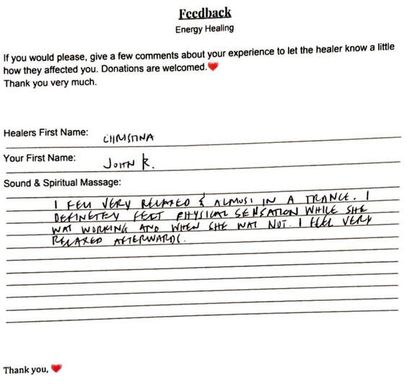 Feedback
Energy Healing
If you would please, give a few comments about your experience to let the healer know a little
how they affected you. Donations are welcomed.❤
Thank you very much.
Healers First Name: CHRISTINA
Your First Name: JOHN R.
Sound & Spiritual Massage:
I FELL VERY RELAXED & ALMOST IN A TRANCE. I
DEFINETLY FELT PHYSICAL SENSATION WHILE SHE
WAS WORKING AND WHEN SHE WAS NOT. I FEEL VERY
RELAXED AFTERWARDS.
Thank you, ❤